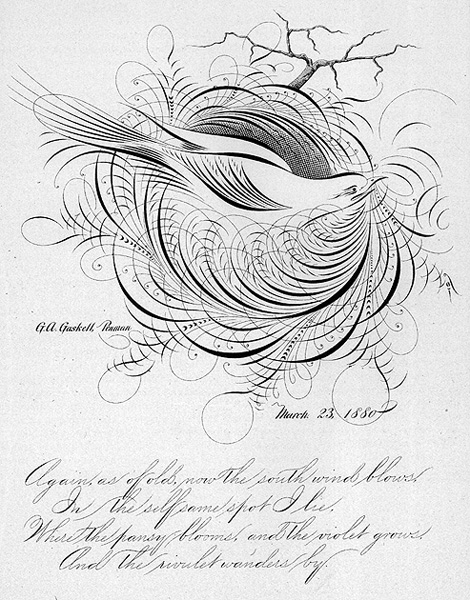 G. A. Gaskell, Penman
March 23, 1880
Again, as of old, now the south wind blows,
In the selfsame spot I lie,
Where the pansy blooms, and the violet grows,
And the rivulet wanders by.